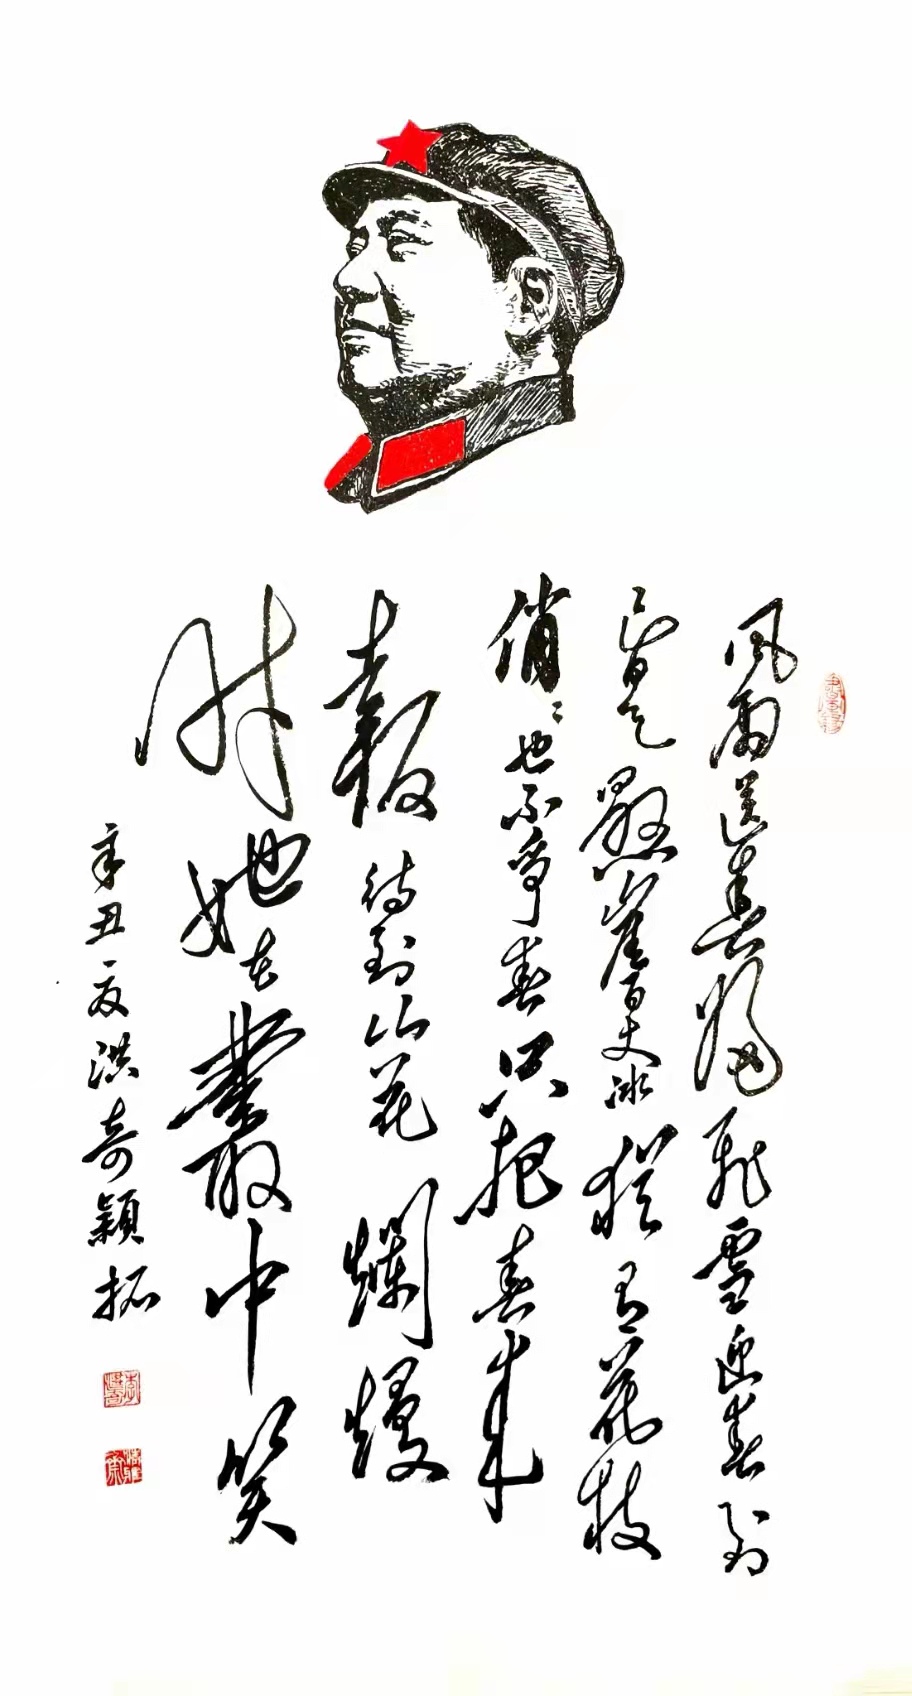 風雨送春歸飛雪迎春到
已是懸崖百丈冰猶有花枝
俏〻也不爭春只把春來
報待到山花爛熳
時她在叢中笑
辛丑夏洪奇穎拓